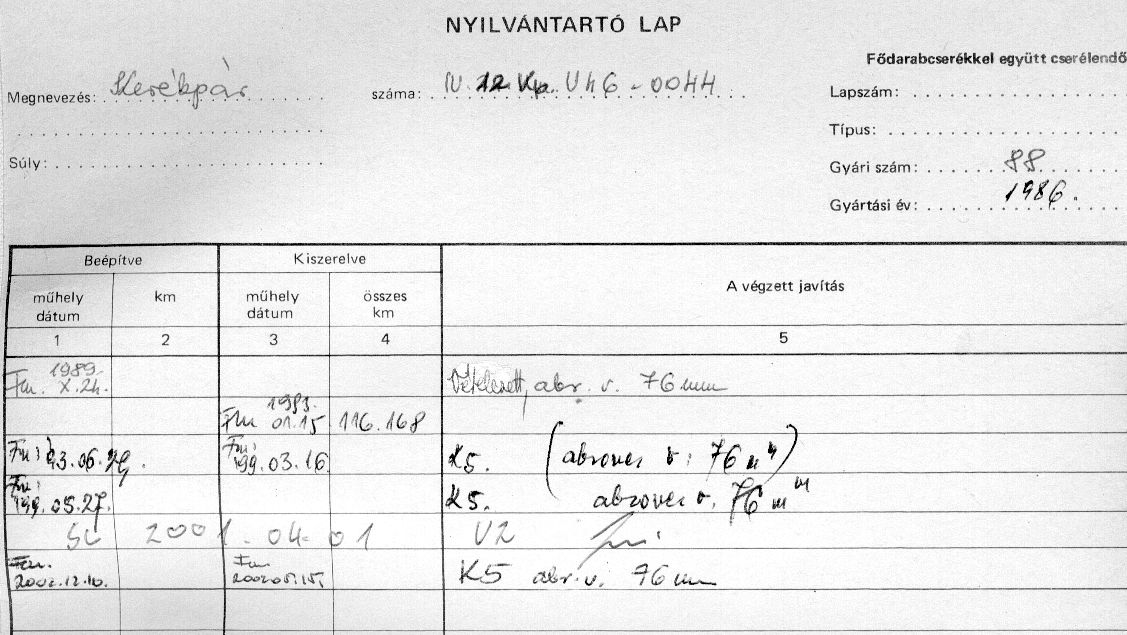 NYILVÁNTARTÓ LAP
Fődarabcserékkel együtt cserélendő
Megnevezés: Kerékpár száma: IV. 12. Kp. V46-0044 Lapszám:
Típus:
Súly: Gyári szám: 88
Gyártási év: 1986.
Beépítve Kiszerelve A végzett javítás
műhely dátum km műhely dátum összes km
1 2 3 4 5
Fm. 1989. X. 24. abr. v. 76 mm
Fm 01.15 116.168
Fm: 93.06.29. Fm: 199.03.16 K5. (abroncs v: 76 mm)
Fm: 199.05.27. K5. abroncs v. 76 mm
SL 2001.04.01 V2
Fm. 2002.12.10. Fm 2002.05.15. K5 abr. v. 76 mm